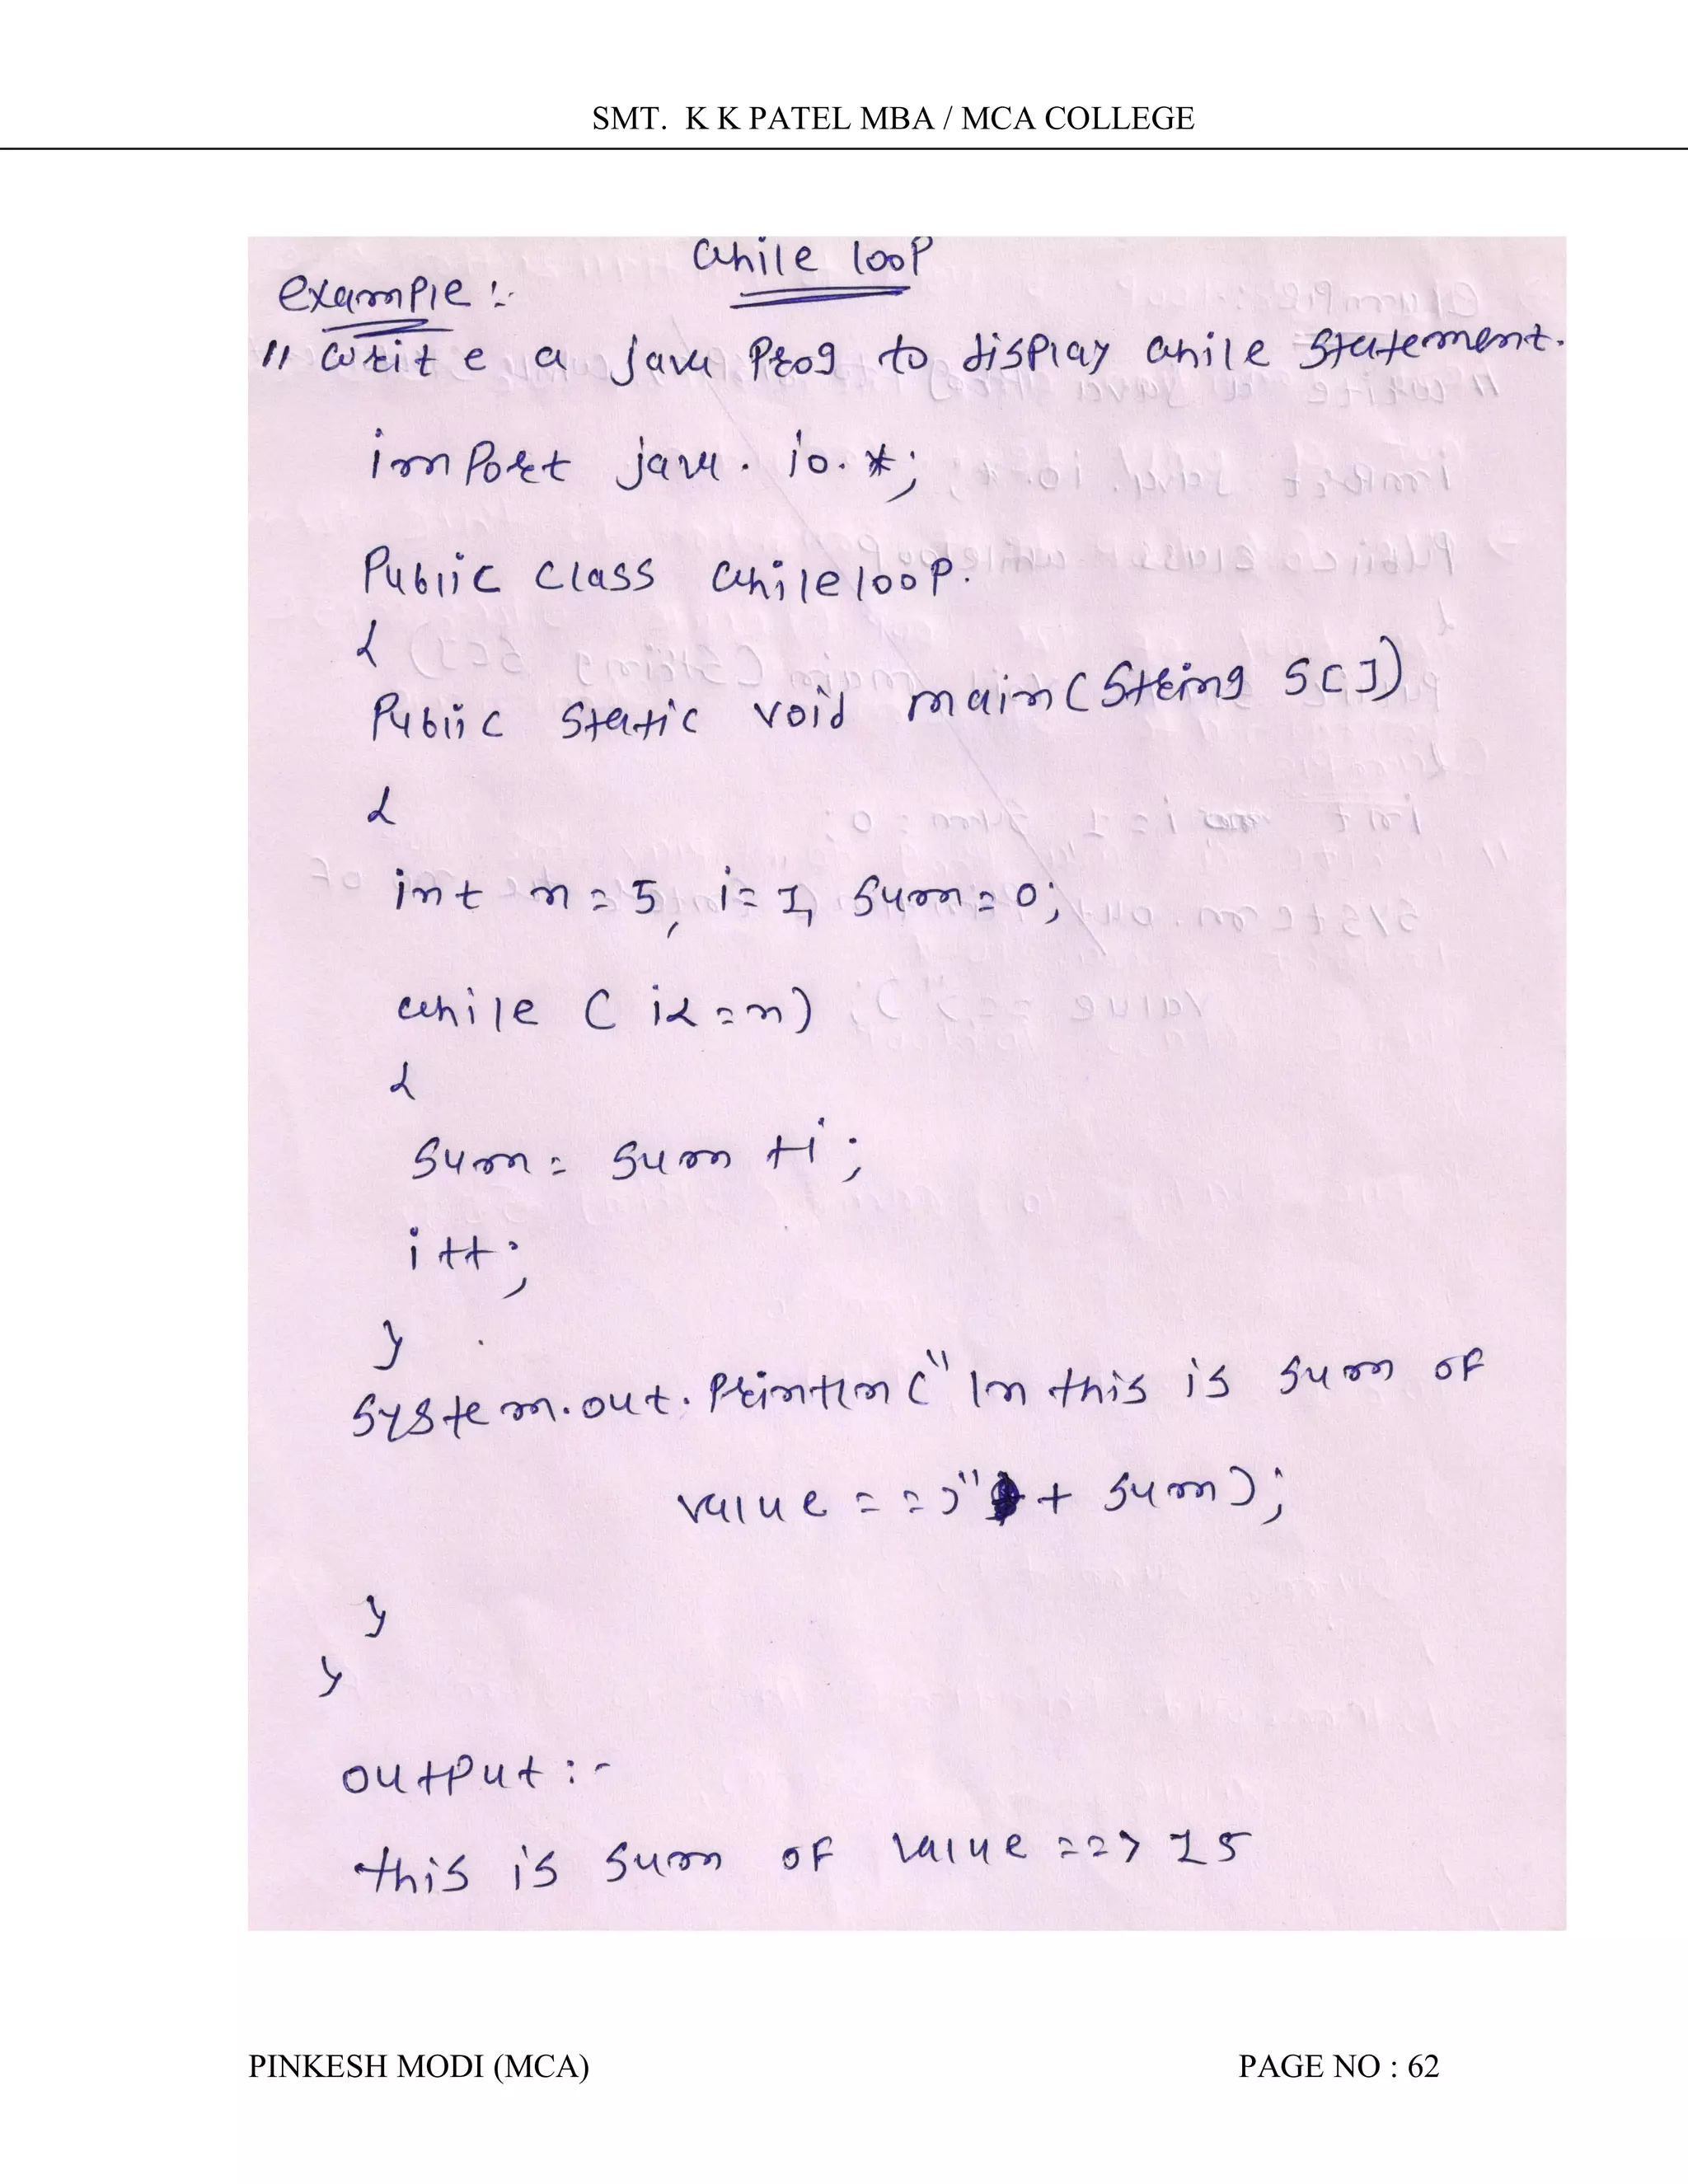 SMT. K K PATEL MBA / MCA COLLEGE
while loop
example :-
// write a java prog to display while statement.
import java . io. *;
Public class whileloop.
{
Public static void main(String s[])
{
int n = 5, i= 1, sum = 0;
while ( i< =n)
{
sum = sum +i ;
i ++ ;
}
System.out.println("In this is sum of
value = =>" + sum);
}
}
output :-
this is sum of value ==> 15
PINKESH MODI (MCA) PAGE NO : 62